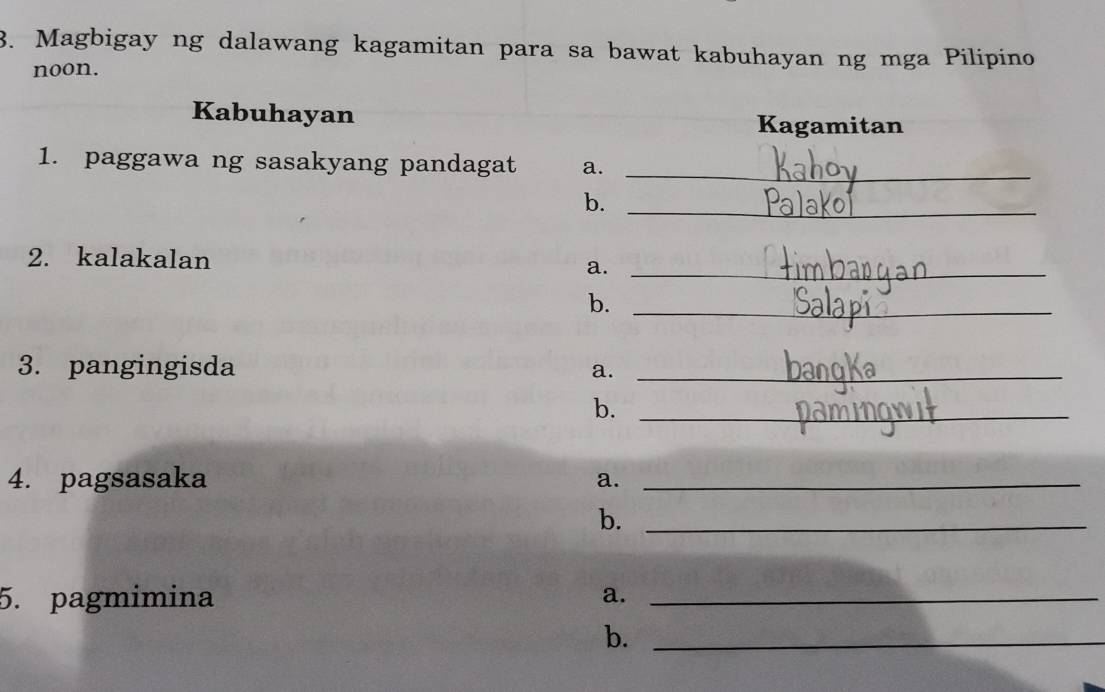 3. Magbigay ng dalawang kagamitan para sa bawat kabuhayan ng mga Pilipino
noon.
Kabuhayan Kagamitan
1. paggawa ng sasakyang pandagat a. Kahoy
b. Palakol
2. kalakalan a. timbangan
b. Salapi
3. pangingisda a. bangka
b. pamingwit
4. pagsasaka a.
b.
5. pagmimina a.
b.